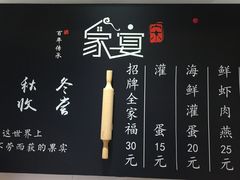 百年传承
家宴
秋收
冬藏
这世界上
不劳而获的果实
招牌全家福30元
灌蛋15元
海鲜灌蛋20元
鲜虾肉燕25元